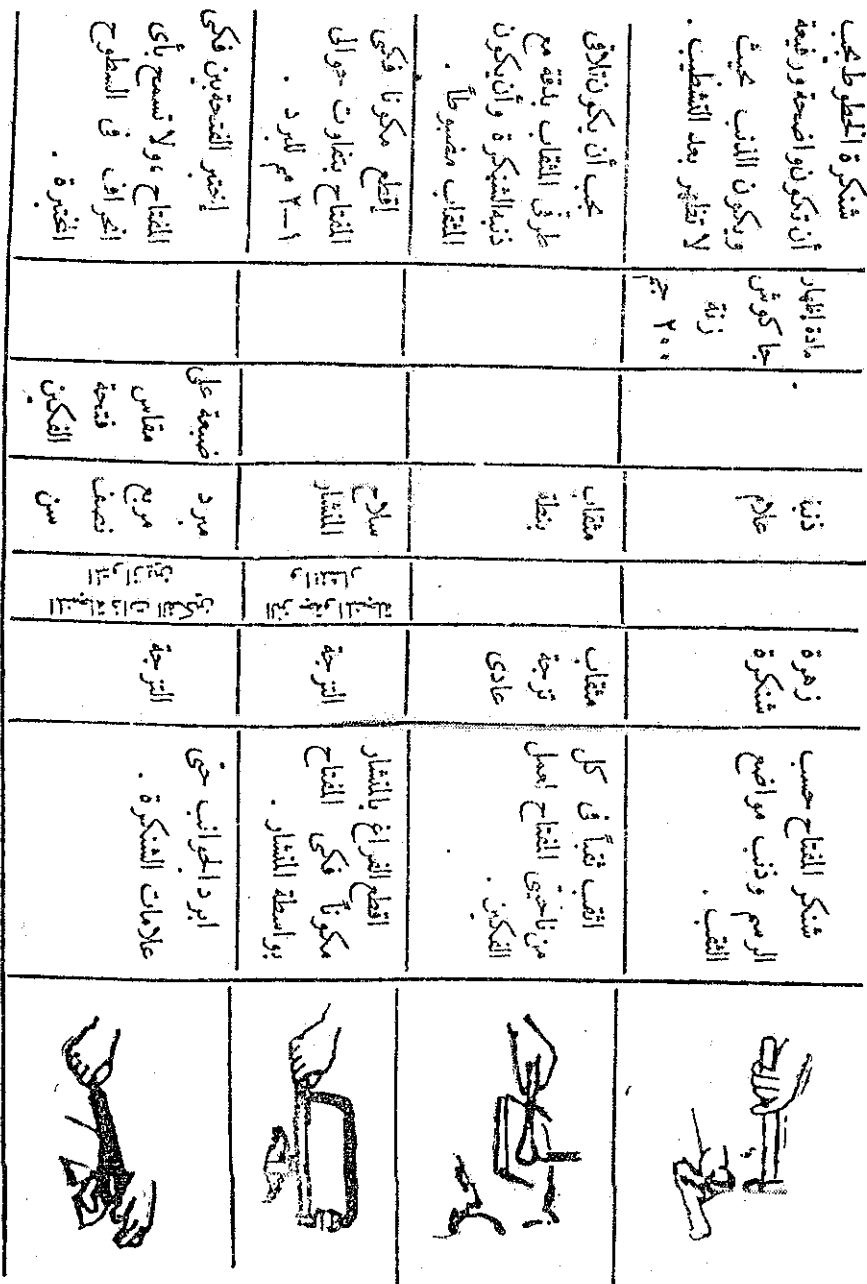 شنكر المفتاح حسب
الرسم وذنب مواضع
الثقب .
زهرة
شنكرة
ذنبة
علام
مادة إظهار
جاكوش
زنة
٢٠٠ جم
شنكرة الخطوط يجب
أن تكون واضحة ورفيعة
ويكون الذنب بحيث
لا تظهر بعد التشطيب .
اثقب ثقباً في كل
من ناحيتى المفتاح لعمل
الفكين .
مثقاب
تزجة
عادى
مثقاب
بنطة
يجب أن يكون تلاقى
طرفى الثقاب بدقة مع
ذنبة الشنكرة وأن يكون
الثقاب مضبوطاً .
اقطع الفراغ بالمنشار
مكوناً فكى المفتاح
بواسطة المنشار .
التزجة
سلاح
المنشار
إقطع مكونا فكى
المفتاح بتفاوت حوالى
١-٢ مم للبرد .
ابرد الجوانب حتى
علامات الشنكرة .
التزجة
مبرد
مربع
نصف
سن
ضبعة على
مقاس
فتحة
الفكين .
إختبر الفتحة بين فكى
المفتاح ، ولا تسمح بأى
انحراف فى السطوح
المختبرة .